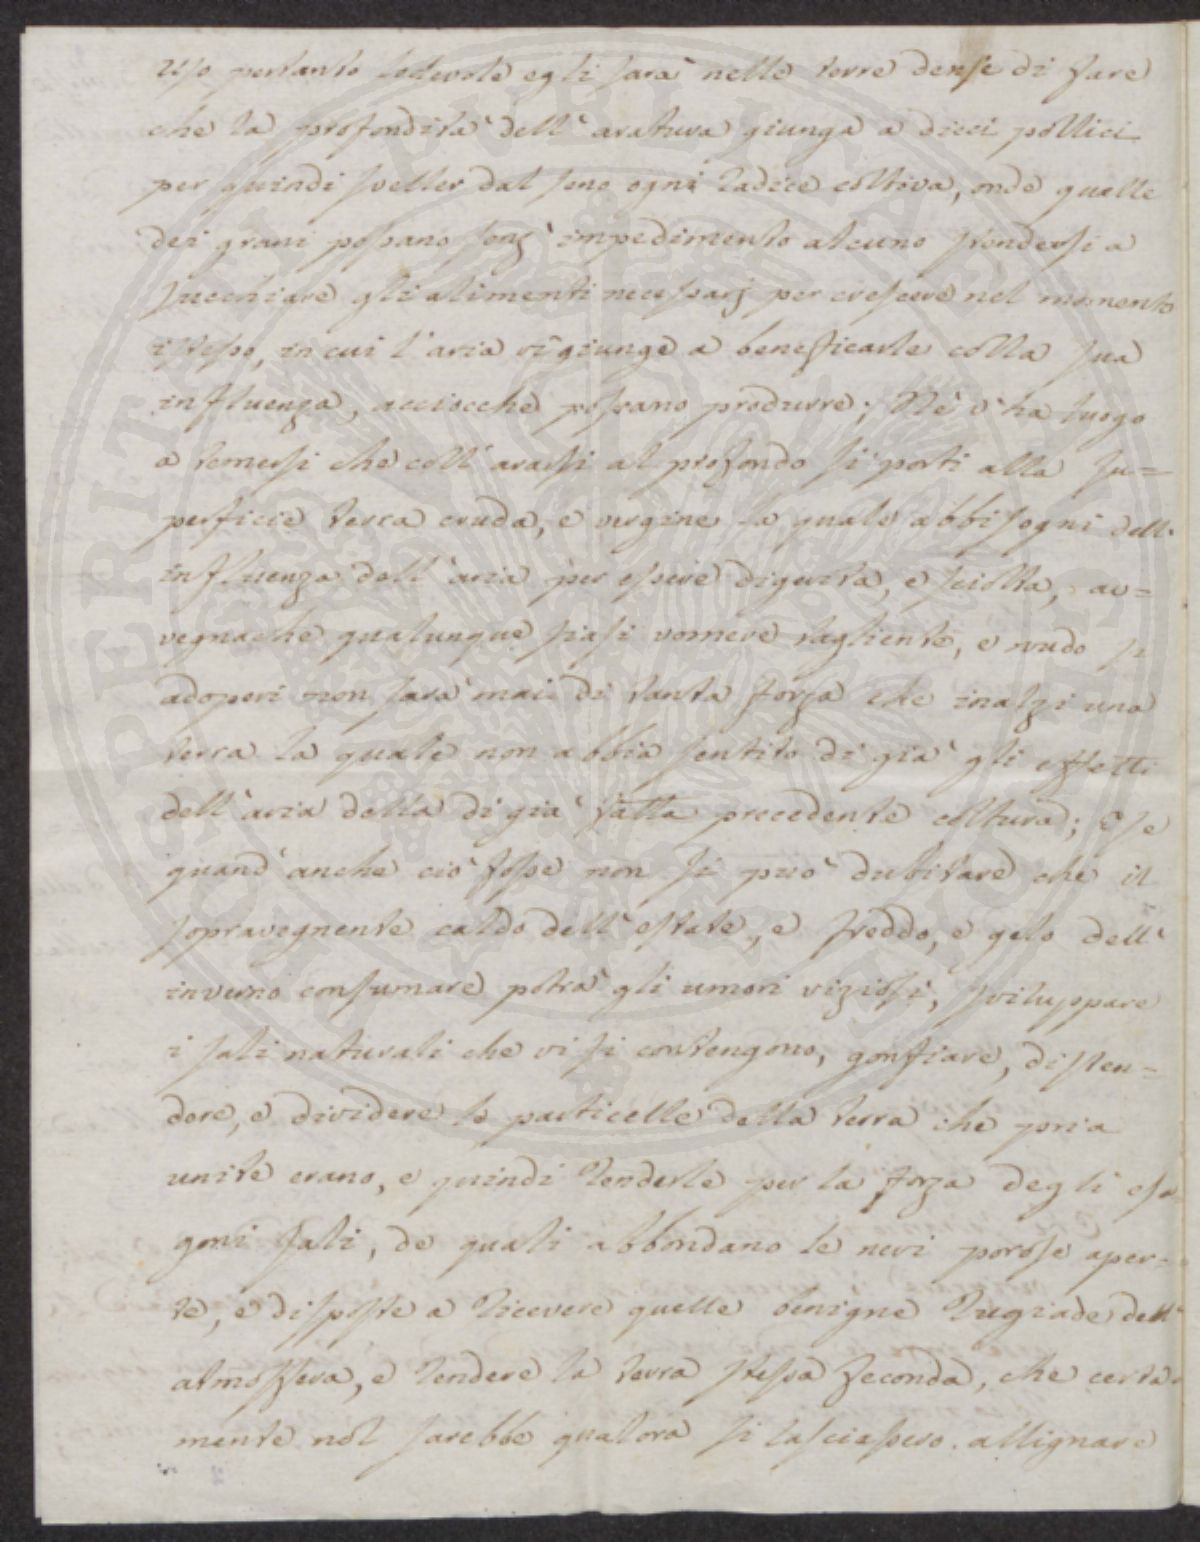 Uso pertanto lodevole egli sarà nelle terre dense di fare
che la profondità dell'aratura giunga a dieci pollici
per quindi sveller dal seno ogni radice cattiva, onde quelle
dei grani possano senz'impedimento alcuno stendersi a
succhiare gli alimenti necessarj per crescere nel momento
istesso, in cui l'aria vi giunge a beneficarle colla sua
influenza, acciocche possano produrre; Nè v'ha luogo
a temersi che coll'ararsi al profondo si porti alla su=
perficie terra cruda, e vergine la quale abbisogni dell'
influenza dell'aria per essere digerita, e sciolta, av=
vegnache qualunque siasi vomere tagliente, e nudo si
adoperi non sarà mai di tanta forza che inalzi una
terra la quale non abbia sentito di già gli effetti
dell'aria dalla di già fatta precedente coltura; E se
quand'anche ciò fosse non si può dubitare che il
sopravegnente caldo dell'estate, e freddo, e gelo dell'
inverno consumare potrà gli umori viziosi, sviluppare
i sali naturali che vi si contengono, gonfiare, disten=
dere, e dividere le particelle della terra che pria
unite erano, e quindi renderle per la forza degli eso=
geni sali, de quali abbondano le nevi porose aper=
te, e disposte a ricevere quelle benigne rugiade dell'
atmosfera, e rendere la terra stessa feconda, che certa=
mente nol sarebbe qualora si lasciassero allignare
PROSPERITATI PUBLICAE AUGENDAE